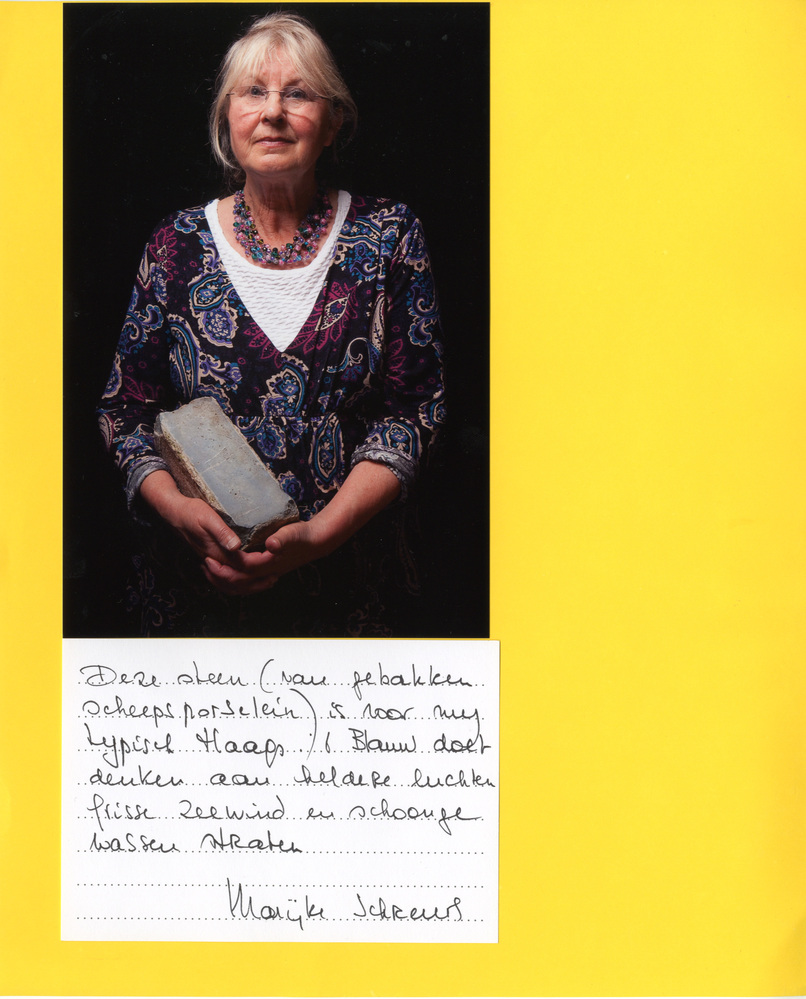 Deze steen (van gebakken
scheepsporselein) is voor mij
typisch Haags. Blauw doet
denken aan heldere luchten
frisse zeewind en schoonge
wassen straten
Marijke Schreurs